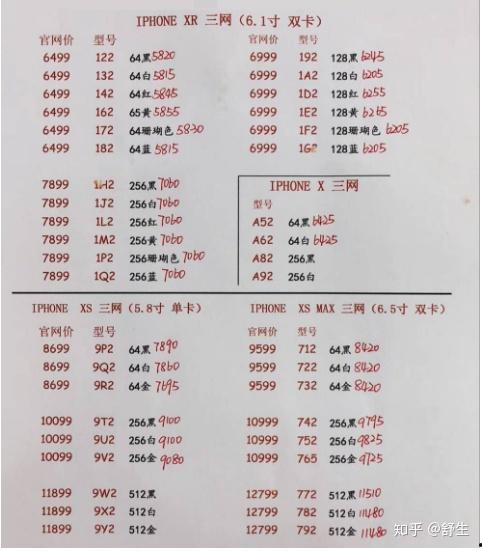 IPHONE XR 三网（6.1寸 双卡）
官网价 型号
6499 122 64黑5820
6499 132 64白5815
6499 142 64红5845
6499 162 65黄5855
6499 172 64珊瑚色5830
6499 182 64蓝5815
官网价 型号
6999 192 128黑6245
6999 1A2 128白6205
6999 1D2 128红6255
6999 1E2 128黄6265
6999 1F2 128珊瑚色6205
6999 1G2 128蓝6205
7899 1H2 256黑7060
7899 1J2 256白7060
7899 1L2 256红7060
7899 1M2 256黄7060
7899 1P2 256珊瑚色7060
7899 1Q2 256蓝7060
IPHONE X 三网
型号
A52 64黑6425
A62 64白6425
A82 256黑
A92 256白
IPHONE XS 三网（5.8寸 单卡）
官网价 型号
8699 9P2 64黑7890
8699 9Q2 64白7860
8699 9R2 64金7695
10099 9T2 256黑9100
10099 9U2 256白9100
10099 9V2 256金9080
11899 9W2 512黑
11899 9X2 512白
11899 9Y2 512金
IPHONE XS MAX 三网（6.5寸 双卡）
官网价 型号
9599 712 64黑8420
9599 722 64白8420
9599 732 64金8420
10999 742 256黑9795
10999 752 256白9825
10999 765 256金9725
12799 772 512黑11510
12799 782 512白11480
12799 792 512金11480
知乎 @舒生